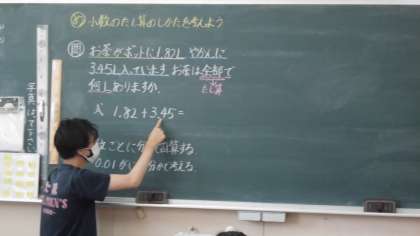 め 小数のたし算のしかたを考えよう
問 お茶がポットに1.82L やかんに
3.45L入っています お茶は全部で
何Lありますか。 たし算
式 1.82+3.45=
ごとに分 計算する
0.01が 分かで考える